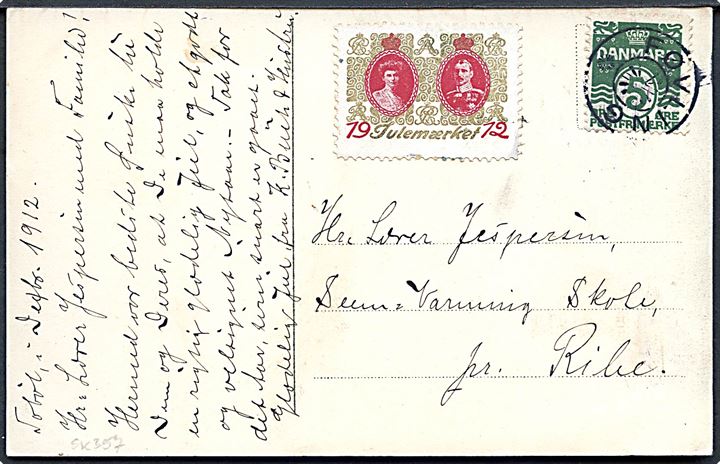 Tobøl, i Decbr. 1912.
Hr. Lærer Jespersen med Familie!
Hermed vor bedste Ønske til
Dem og Deres, at De maa holde
en rigtig glædelig Jul, og et godt
og velsignet Nytaar. – Tak for
det Aar, som snart er gaaet.
Glædelig Jul fra K. Buch & Hustru.
SK357
19 Julemærket 12
DANMARK
5
ØRE
FØVLING
Hr. Lærer Jespersen,
Seem=Varming Skole,
pr. Ribe.